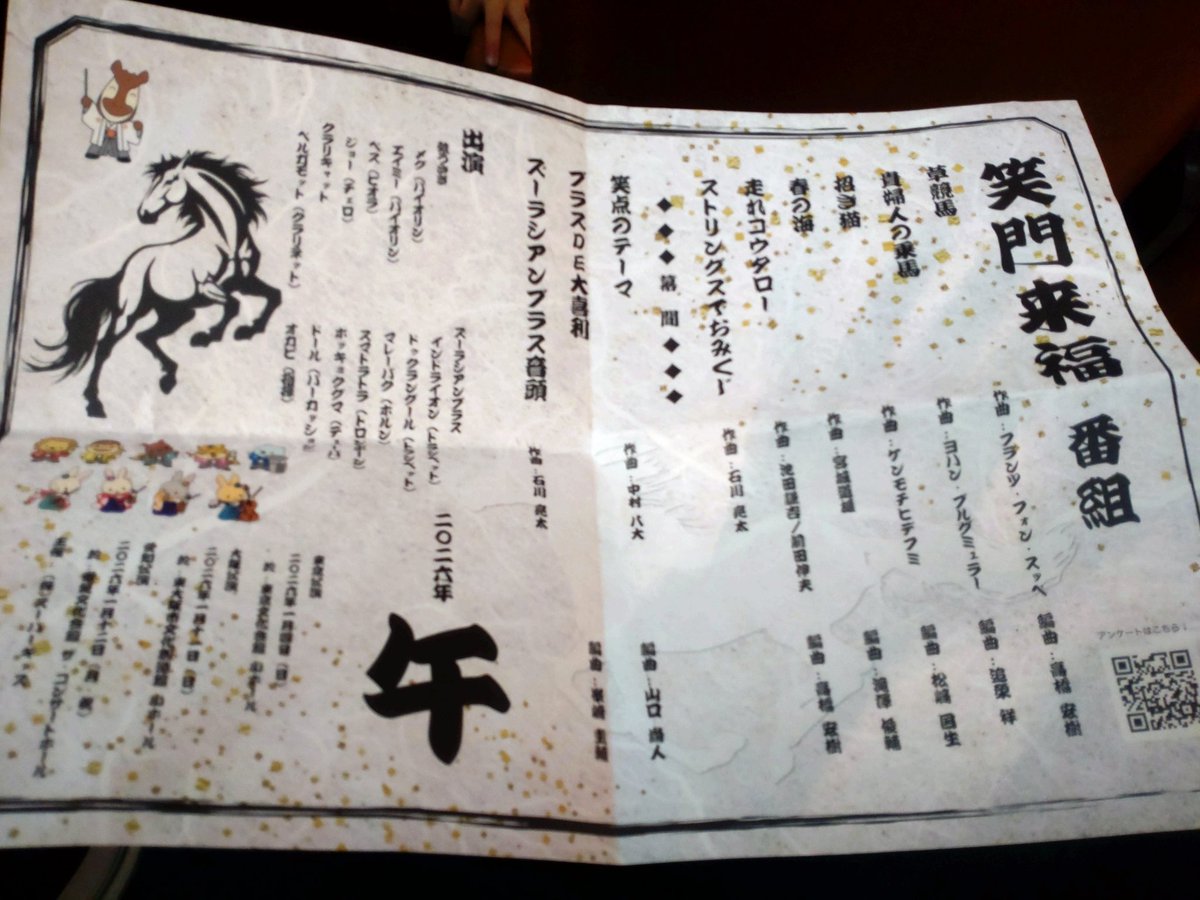 笑門来福 番組
アンケートはこちら！
草競馬 作曲：フランツ・フォン・スッペ 編曲：高橋 宏樹
貴婦人の乗馬 作曲：ヨハン・ブルグミュラー 編曲： 祥
招き猫 作曲：ケンモチヒデフミ 編曲：松﨑 国生
春の海 作曲：宮城道雄 編曲：滝澤 俊輔
走れコウタロー 作曲：池田謙吉／前田伸夫 編曲：高橋 宏樹
ストリングスでおみくじ 作曲：石川 亮太
◆◆◆第 間◆◆◆
笑点のテーマ 作曲：中村 八大 編曲：山口 尚人
ブラスDE大喜利 編曲：
ズーラシアンブラス音頭 作曲：石川 亮太
出演
弦うさぎ
メグ（バイオリン）
エイミー（バイオリン）
ベス（ビオラ）
ジョー（チェロ）
クラリキャット
ベルガモット（クラリネット）
ズーラシアンブラス
インドライオン（トランペット）
ドゥクラングール（トランペット）
マレーバク（ホルン）
スマトラトラ（トロンボーン）
ホッキョクグマ（テューバ）
ドール（パーカッション）
オカピ（指揮）
二〇二六年
午
東京公演
二〇二六年一月四日（日）
於：東京文化会館 小ホール
大阪公演
二〇二六年一月十一日（日）
於：東大阪市文化創造館 小ホール
愛知公演
二〇二六年一月十二日（月・祝）
コンサートホール
主催：（株）スーパーキッズ